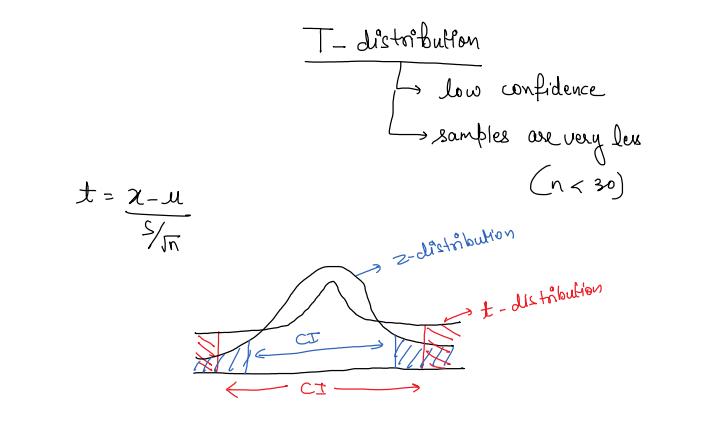 T- distribution
low confidence
samples are very less
(n < 30)
t = x-μ
S/√n
z-distribution
t-distribution
CI
CI